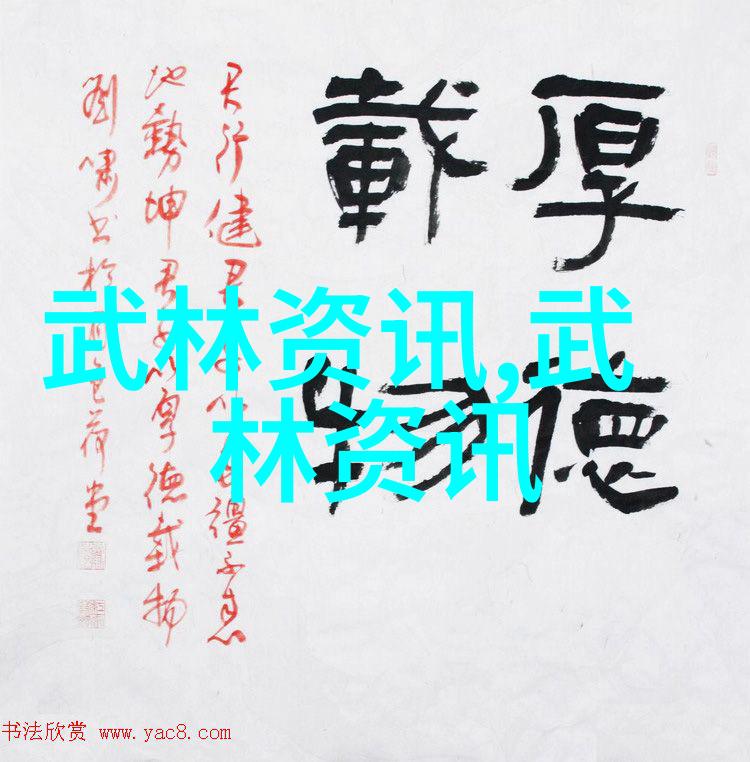 厚德
載物
天行健君子以自彊不息
地勢坤君子以厚德載物
劉嘯书於
荷堂
武林资讯,武
林资讯
书法欣赏 www.yac8.com